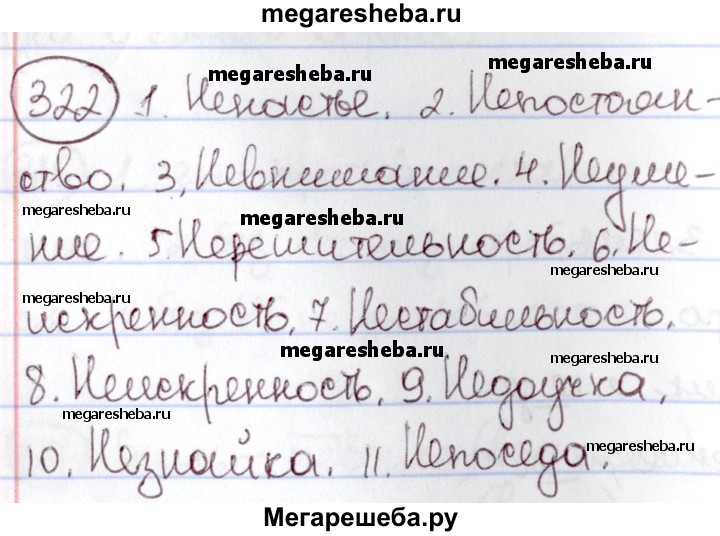 megaresheba.ru
megaresheba.ru megaresheba.ru
322 1. Ненастье. 2. Непостоян-
ство. 3. Невнимание. 4. Неуме-
megaresheba.ru megaresheba.ru megaresheba.ru
ние. 5. Нерешительность. 6. Не-
megaresheba.ru megaresheba.ru
искренность. 7. Нестабильность.
megaresheba.ru megaresheba.ru
8. Неискренность. 9. Недоучка.
megaresheba.ru megaresheba.ru
10. Незнайка. 11. Непоседа.
Мегарешеба.ру